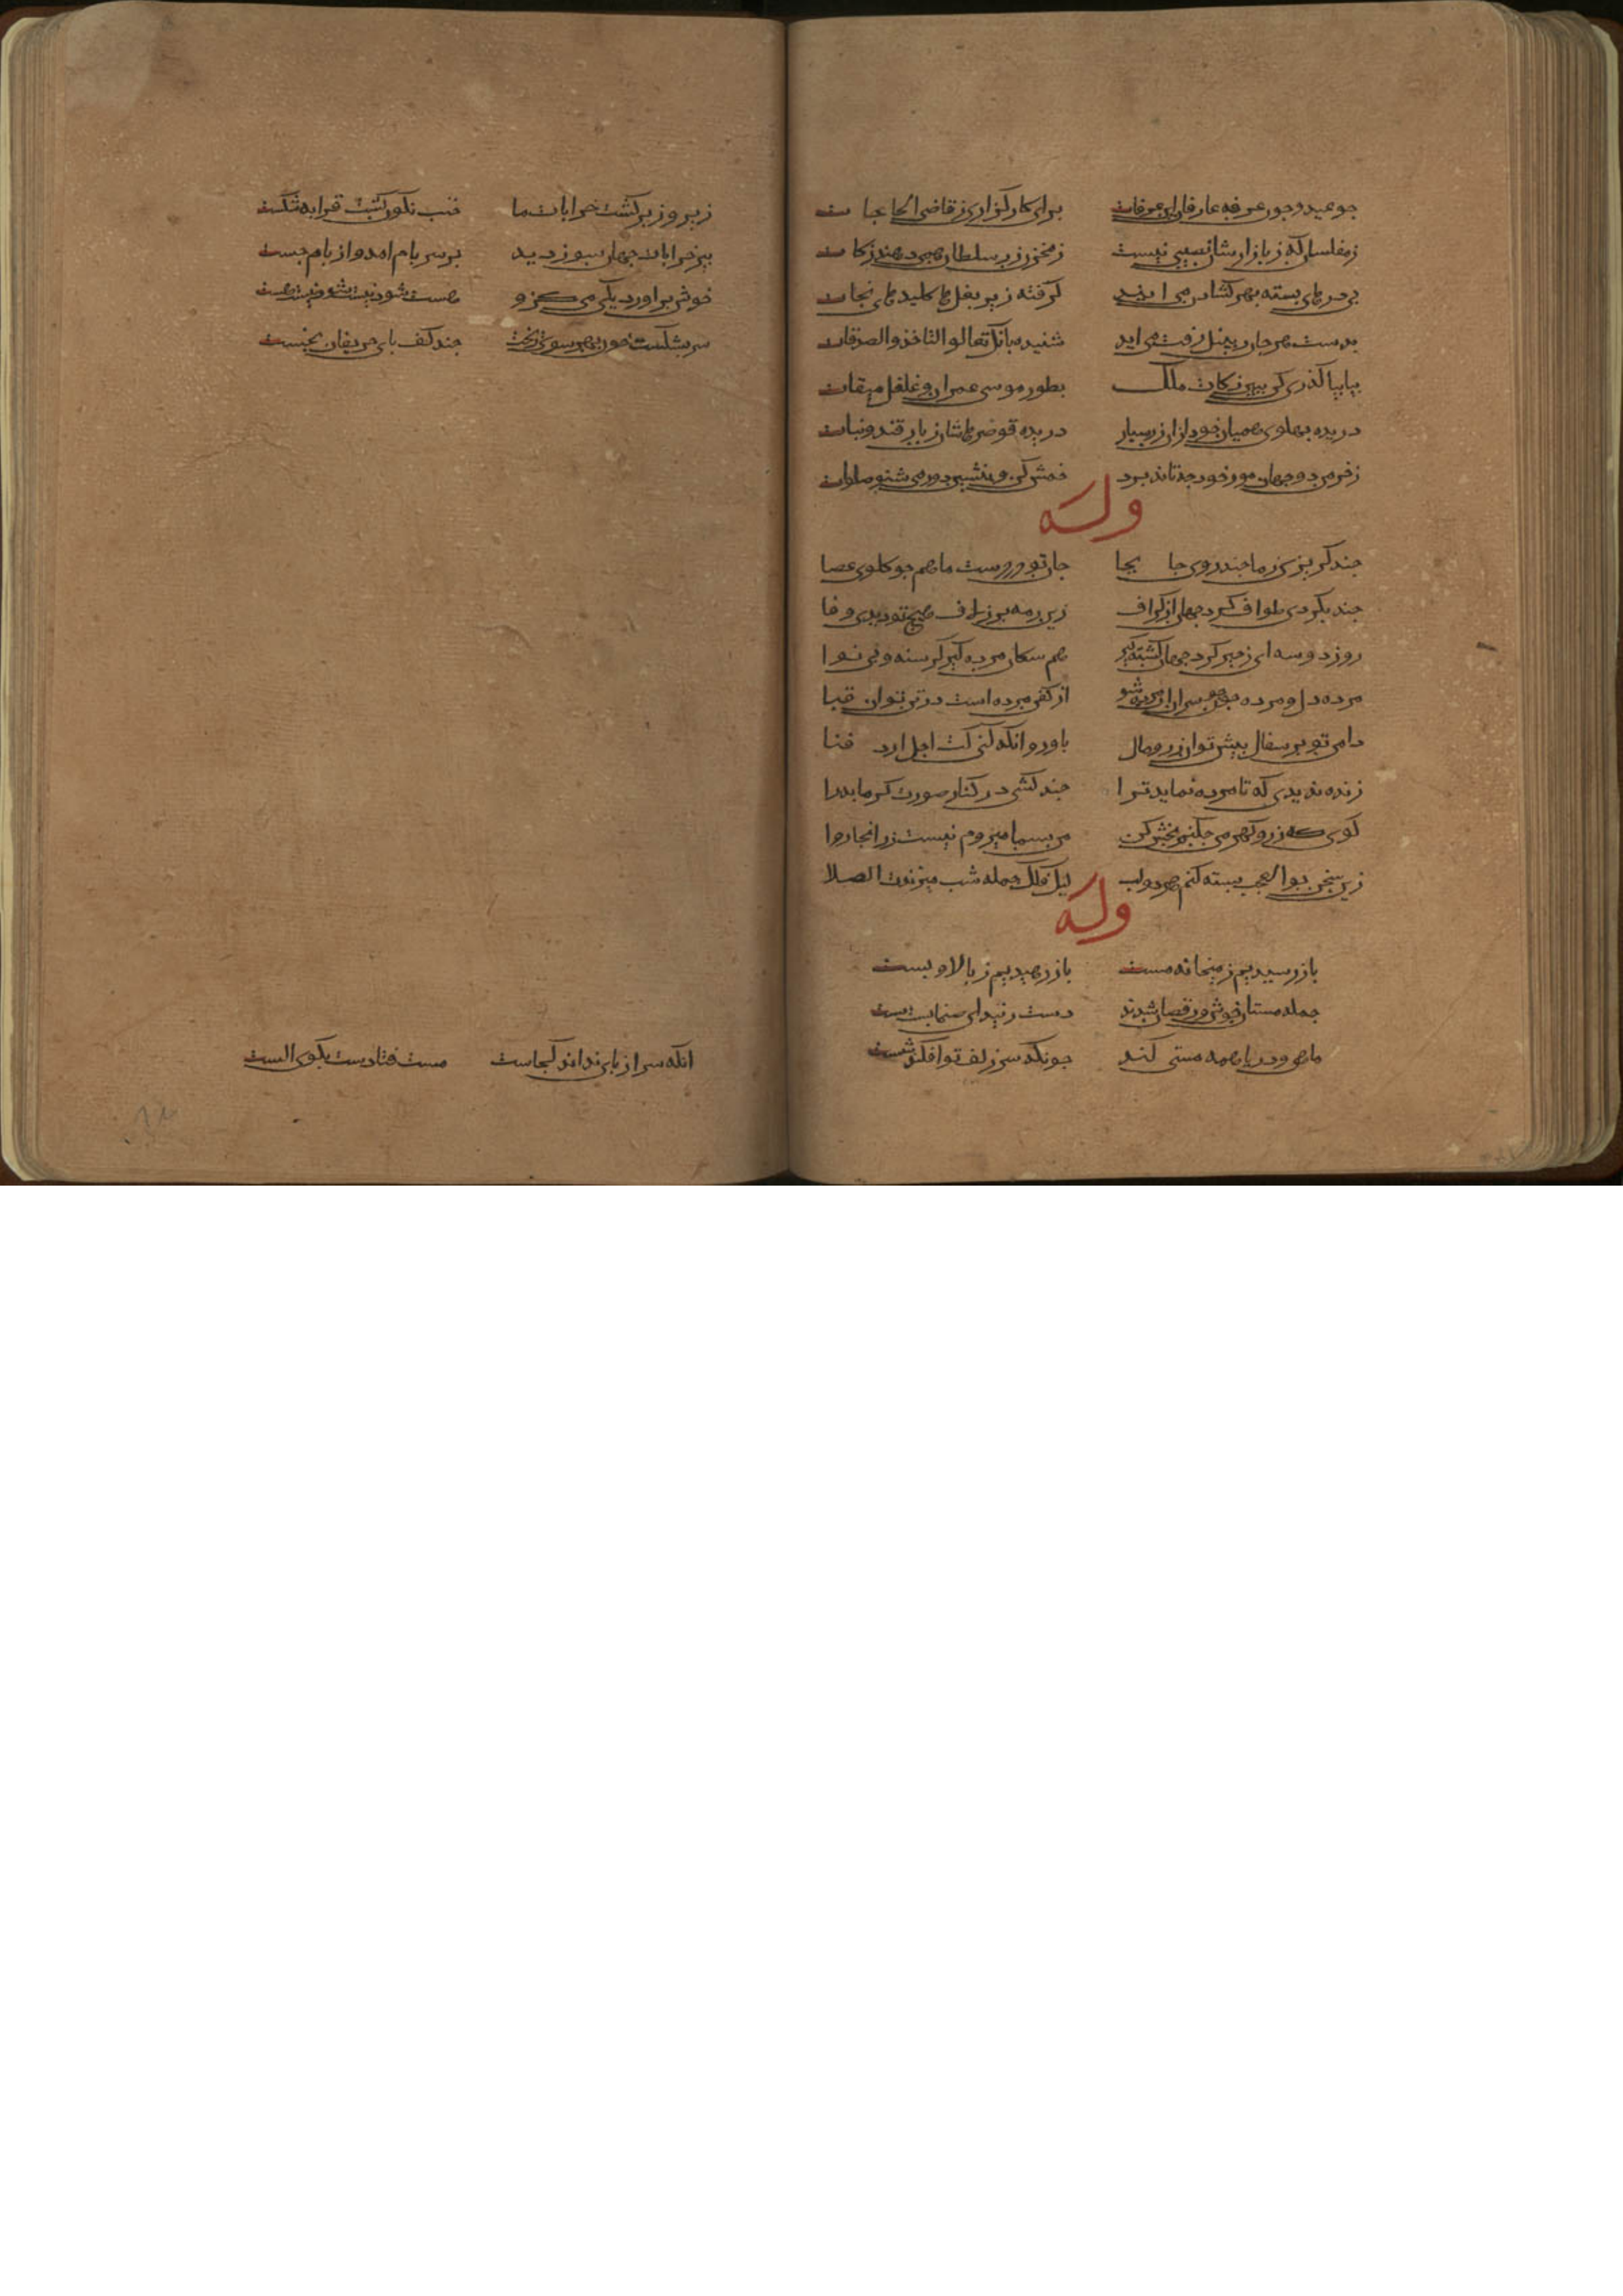 جو عید و جون عرفه عارفان این عرفات برای کارگزاری ز قاضی الحاجات
ز مفلسان که ز بازارشان نصیبی نیست ز مخزن زر سلطان همی دهند زکات
بی درهای بسته بهر کشادن می ایند گرفته زیر بغل ها کلیدهای نجات
بدست هر جان زنبیل زفت می اید شنیده بانگ تعالوا لتاخذوا الصدقات
بیا بیا گذری کن ببین زکات ملک بطور موسی عمران و غلغل میقات
دریده بهلوی همیان خود ازان زر بسیار دریده قوصره هاشان ز بار قند و نبات
ز خرمن دو جهان مور خود جه تاند برد خمش کن و بنشین دور و می شنو صلوات
وله
جند گریزی ز ما جند روی جا بجا جان تو در دست ماهم جو گلوی عصا
جند بکردی طواف گرد جهان از گزاف زین رمه بر ز لاف هیچ تو دیدی وفا
روز دو سه ای زحیر گرد جهان گشته گیر هم سگان مرده گیر گرسنه و بی نوا
مرده دل و مرده جو جون بسران مرده شو از کفن مرده است در تن تو ان قبا
دامن تو بر سفال بیش تو ان زر و مال باور و انکه کنی کت اجل ارد فنا
زنده ندیدی که تا مرده نماید ترا جند کشی در کنار صورت گرمابه را
گوی که زر کهن من جکنم بخش کن من بسما میروم نیست زر انجا روا
زین سخن بوالعجب بسته کنم هر دو لب لیک فلک جمله شب میزندت الصلا
وله
باز رسیدیم ز میخانه مست باز رهیدیم ز بالا و بست
جمله مستان خوش و رقصان شدند دست زنید ای صنمان دست دست
ماهی و دریا همه مستی کنند جونکه سر زلف تو افکند شست
زیر و زبر گشت خرابات ما خنب نگون گشت قرابه شکست
بیر خرابات جهان سوز دید بر سر بام امد و از بام جست
خوش براورد یکی می کزو هست شود نیست شود نیست هست
سر بشکست جون بهر سو بریخت جند کف بای حریفان بخست
انکه سر از بای نداند کجاست مست فتادست بکوی الست